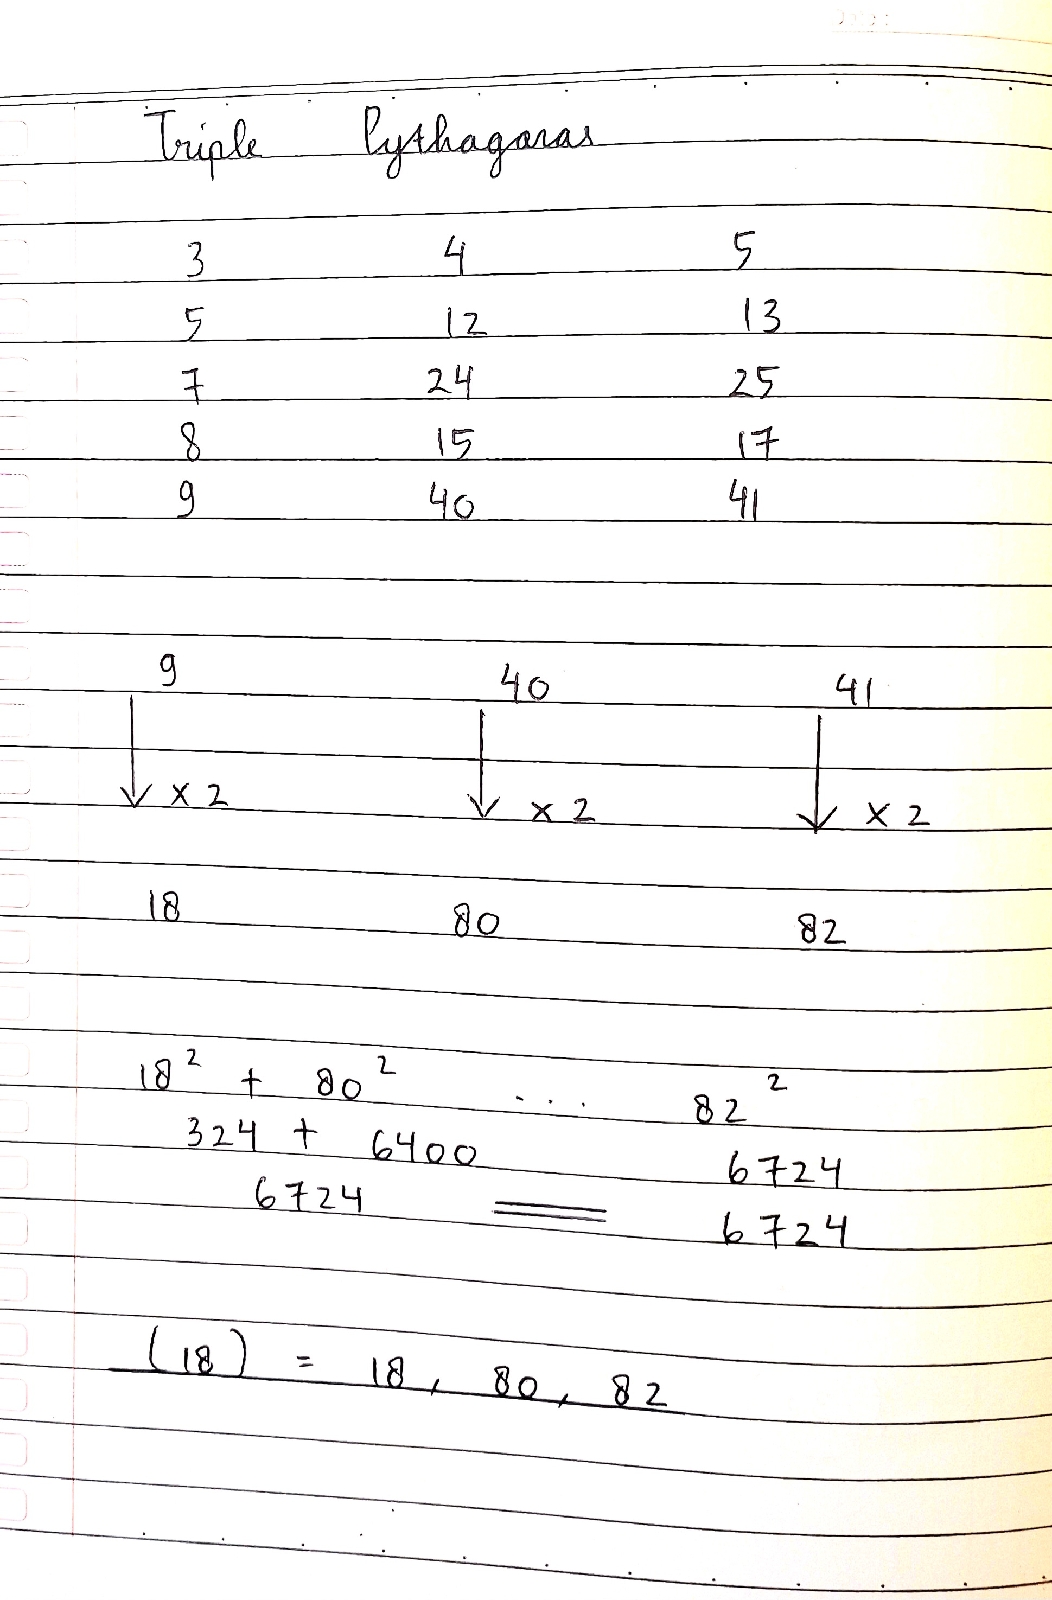 Triple Pythagoras
3 4 5
5 12 13
7 24 25
8 15 17
9 40 41
9 40 41
↓ × 2 ↓ × 2 ↓ × 2
18 80 82
18² + 80² ... 82²
324 + 6400 6724
6724 = 6724
(18) = 18, 80, 82